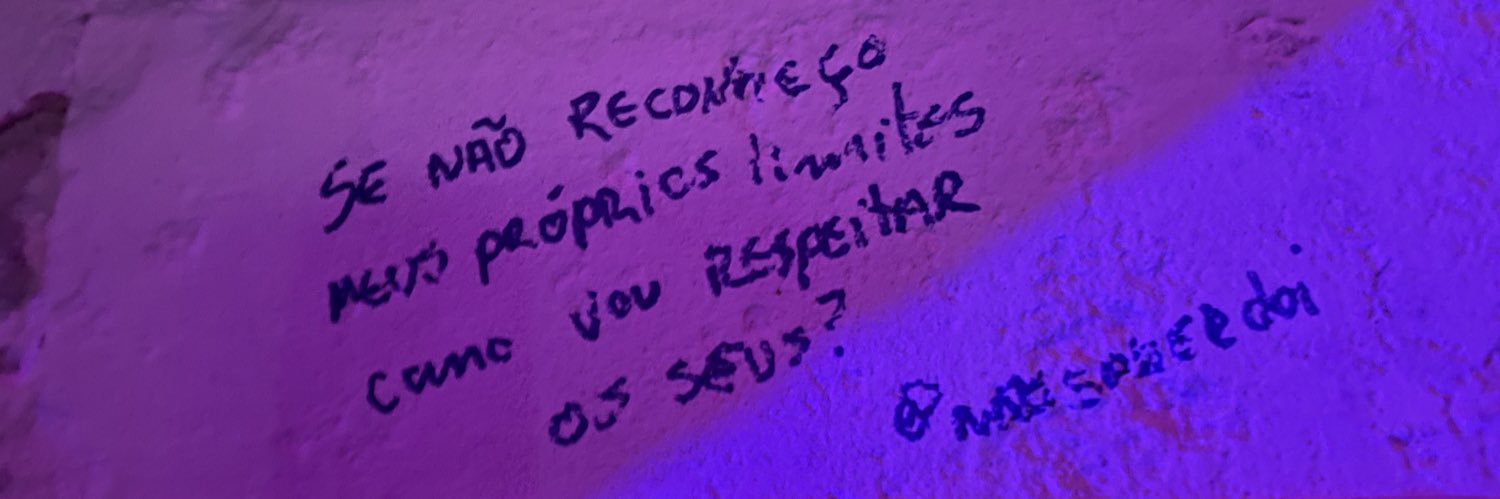 SE NÃO RECONHEÇO
MEUS PRÓPRIOS limites
como vou RESPEitAR
os SEUS?
doi